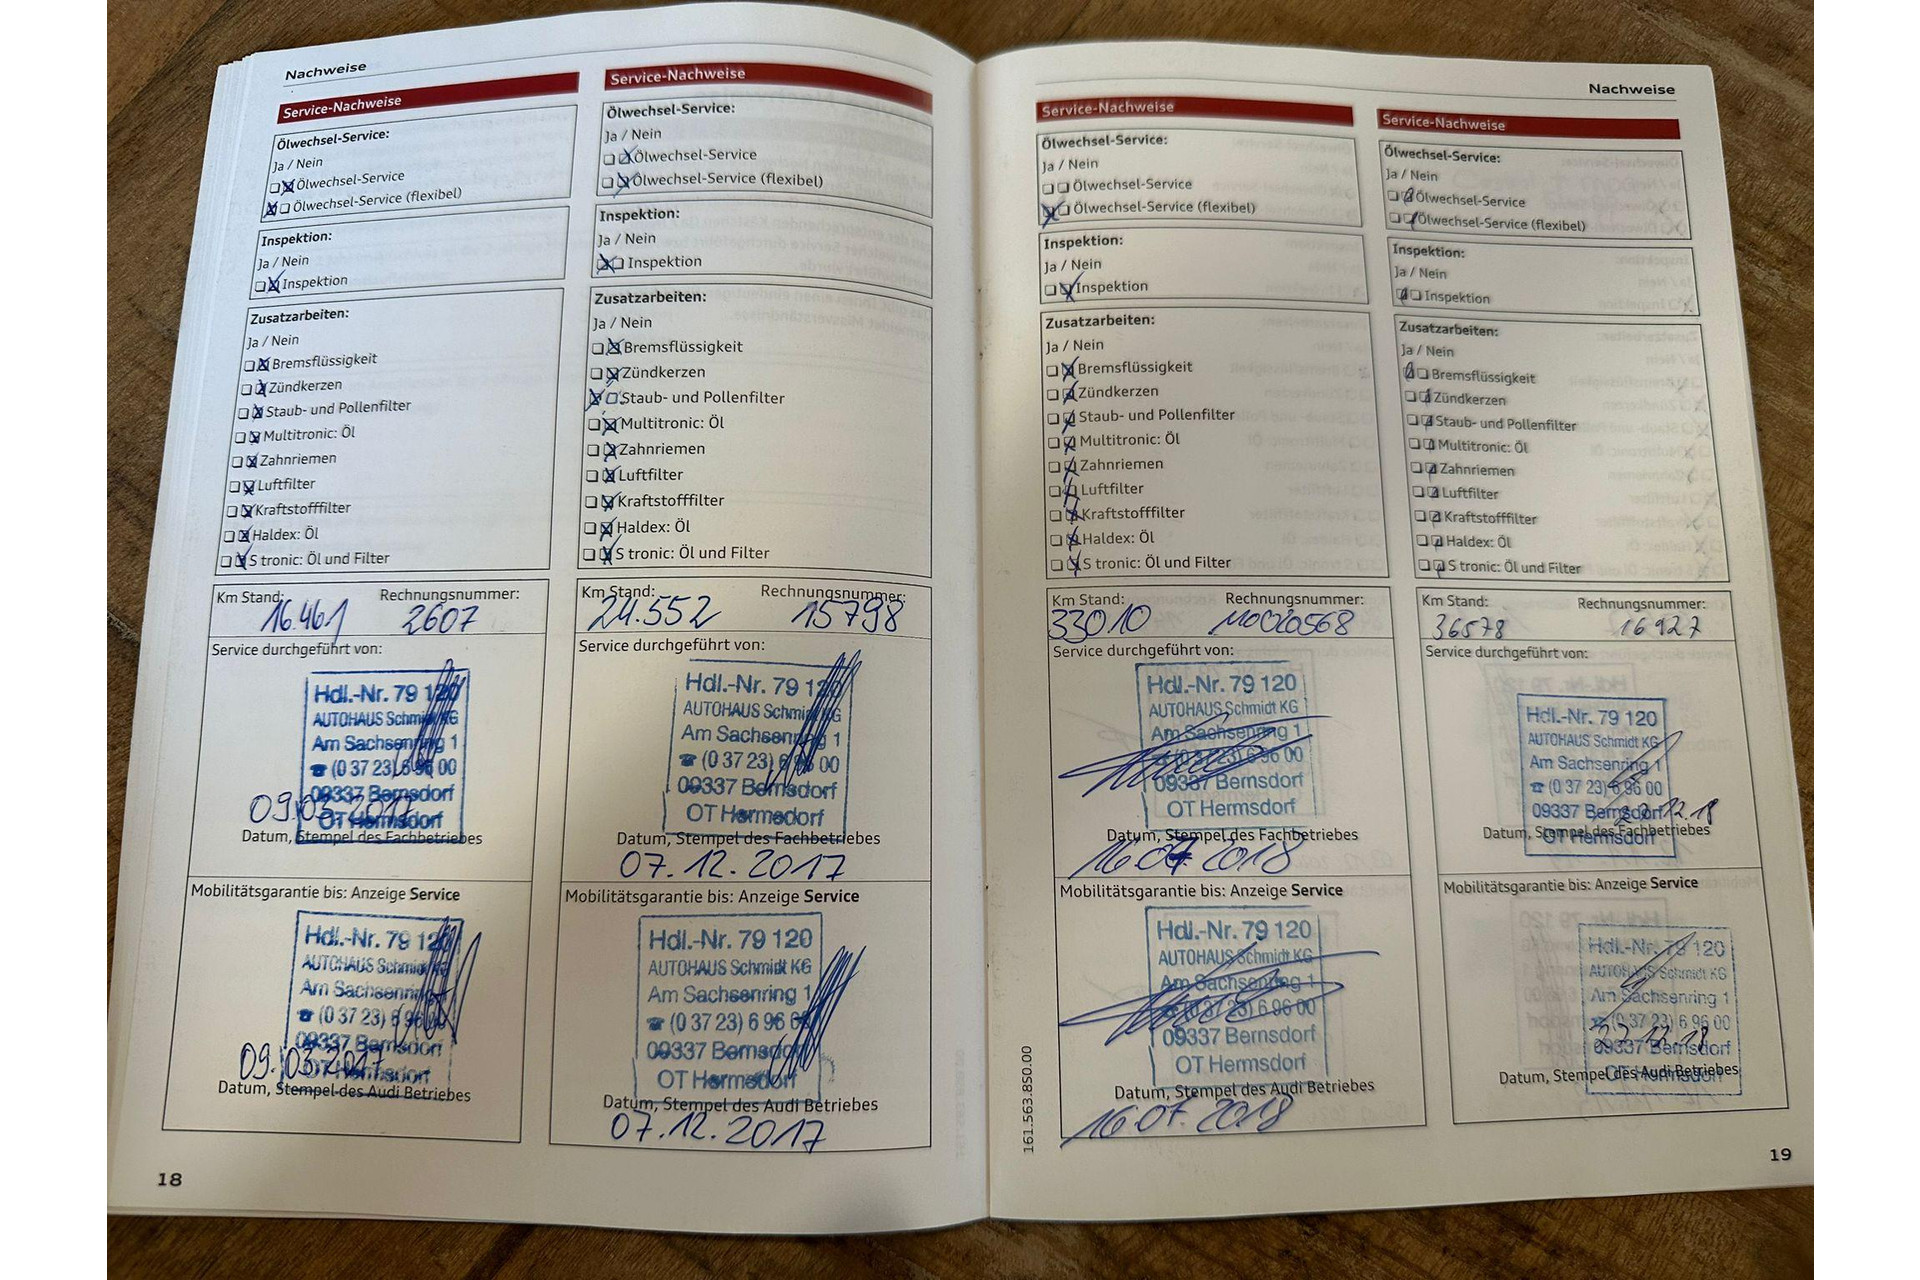 Nachweise
Service-Nachweise
Ölwechsel-Service:
Ja / Nein
Ölwechsel-Service
Ölwechsel-Service (flexibel)
Inspektion:
Ja / Nein
Inspektion
Zusatzarbeiten:
Ja / Nein
Bremsflüssigkeit
Zündkerzen
Staub- und Pollenfilter
Multitronic: Öl
Zahnriemen
Luftfilter
Kraftstofffilter
Haldex: Öl
S tronic: Öl und Filter
Km Stand: Rechnungsnummer:
16.461 2607
Service durchgeführt von:
Hdl.-Nr. 79 120
AUTOHAUS Schmidt KG
Am Sachsenring 1
☎ (0 37 23) 6 96 00
09337 Bernsdorf
OT Hermsdorf
09.03.2017
Datum, Stempel des Fachbetriebes
Mobilitätsgarantie bis: Anzeige Service
Hdl.-Nr. 79 120
AUTOHAUS Schmidt KG
Am Sachsenring 1
☎ (0 37 23) 6 96 00
09337 Bernsdorf
OT Hermsdorf
09.03.2017
Datum, Stempel des Audi Betriebes
18
Service-Nachweise
Ölwechsel-Service:
Ja / Nein
Ölwechsel-Service
Ölwechsel-Service (flexibel)
Inspektion:
Ja / Nein
Inspektion
Zusatzarbeiten:
Ja / Nein
Bremsflüssigkeit
Zündkerzen
Staub- und Pollenfilter
Multitronic: Öl
Zahnriemen
Luftfilter
Kraftstofffilter
Haldex: Öl
S tronic: Öl und Filter
Km Stand: Rechnungsnummer:
24.552 15798
Service durchgeführt von:
Hdl.-Nr. 79 120
AUTOHAUS Schmidt KG
Am Sachsenring 1
☎ (0 37 23) 6 96 00
09337 Bernsdorf
OT Hermsdorf
Datum, Stempel des Fachbetriebes
07.12.2017
Mobilitätsgarantie bis: Anzeige Service
Hdl.-Nr. 79 120
AUTOHAUS Schmidt KG
Am Sachsenring 1
☎ (0 37 23) 6 96 00
09337 Bernsdorf
OT Hermsdorf
Datum, Stempel des Audi Betriebes
07.12.2017
Nachweise
Service-Nachweise
Ölwechsel-Service:
Ja / Nein
Ölwechsel-Service
Ölwechsel-Service (flexibel)
Inspektion:
Ja / Nein
Inspektion
Zusatzarbeiten:
Ja / Nein
Bremsflüssigkeit
Zündkerzen
Staub- und Pollenfilter
Multitronic: Öl
Zahnriemen
Luftfilter
Kraftstofffilter
Haldex: Öl
S tronic: Öl und Filter
Km Stand: Rechnungsnummer:
33010
Service durchgeführt von:
Hdl.-Nr. 79 120
AUTOHAUS Schmidt KG
Am Sachsenring 1
(0 37 23) 6 96 00
09337 Bernsdorf
OT Hermsdorf
Datum, Stempel des Fachbetriebes
16.07.2018
Mobilitätsgarantie bis: Anzeige Service
Hdl.-Nr. 79 120
AUTOHAUS Schmidt KG
Am Sachsenring 1
(0 37 23) 6 96 00
09337 Bernsdorf
OT Hermsdorf
Datum, Stempel des Audi Betriebes
16.07.2018
161.563.850.00
Service-Nachweise
Ölwechsel-Service:
Ja / Nein
Ölwechsel-Service
Ölwechsel-Service (flexibel)
Inspektion:
Ja / Nein
Inspektion
Zusatzarbeiten:
Ja / Nein
Bremsflüssigkeit
Zündkerzen
Staub- und Pollenfilter
Multitronic: Öl
Zahnriemen
Luftfilter
Kraftstofffilter
Haldex: Öl
S tronic: Öl und Filter
Km Stand: Rechnungsnummer:
36578 16927
Service durchgeführt von:
Hdl.-Nr. 79 120
AUTOHAUS Schmidt KG
Am Sachsenring 1
☎ (0 37 23) 6 96 00
09337 Bernsdorf
OT Hermsdorf
Datum, Stempel des Fachbetriebes
Mobilitätsgarantie bis: Anzeige Service
Hdl.-Nr. 79 120
AUTOHAUS Schmidt KG
Am Sachsenring 1
☎ (0 37 23) 6 96 00
09337 Bernsdorf
OT Hermsdorf
Datum, Stempel des Audi Betriebes
19